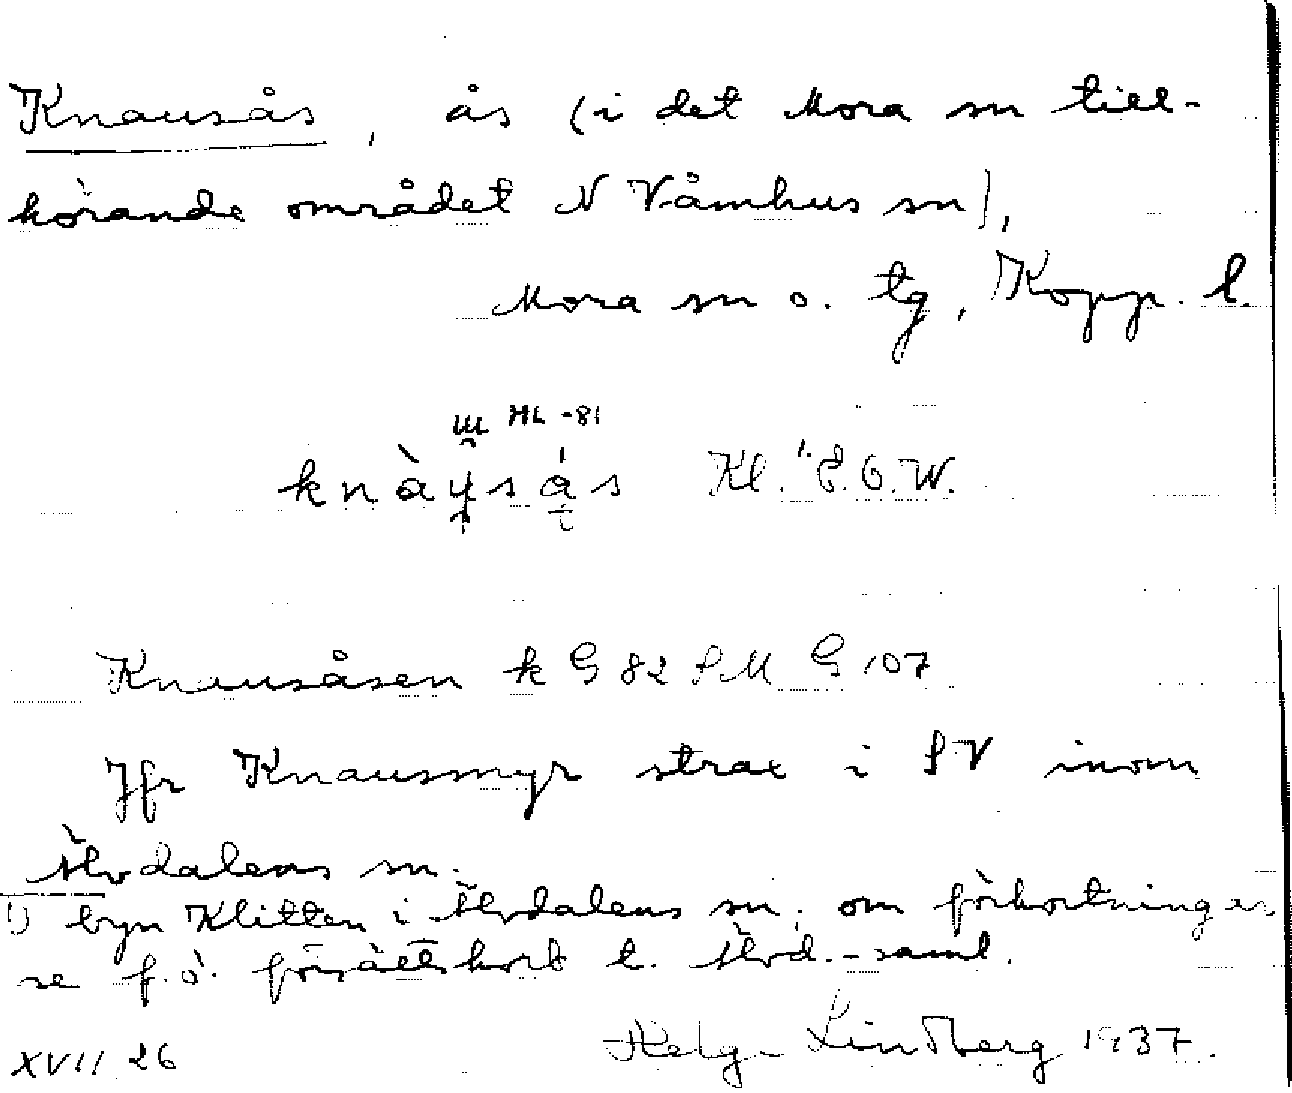 Knausås, ås (i det Mora sn till-
hörande området N Våmhus sn),
Mora sn o. tg, Kopp. l.
HL -81
Kl.¹⁾ E.O.W.
Knausåsen k G 82 SM G 107
Jfr Knausmyr strax i SV inom
Älvdalens sn.
1) byn Klitten i Älvdalens sn; om förkortningar
se f.ö. försättskort t. Älvd.-saml.
XVII 26 Helge Lindberg 1937.